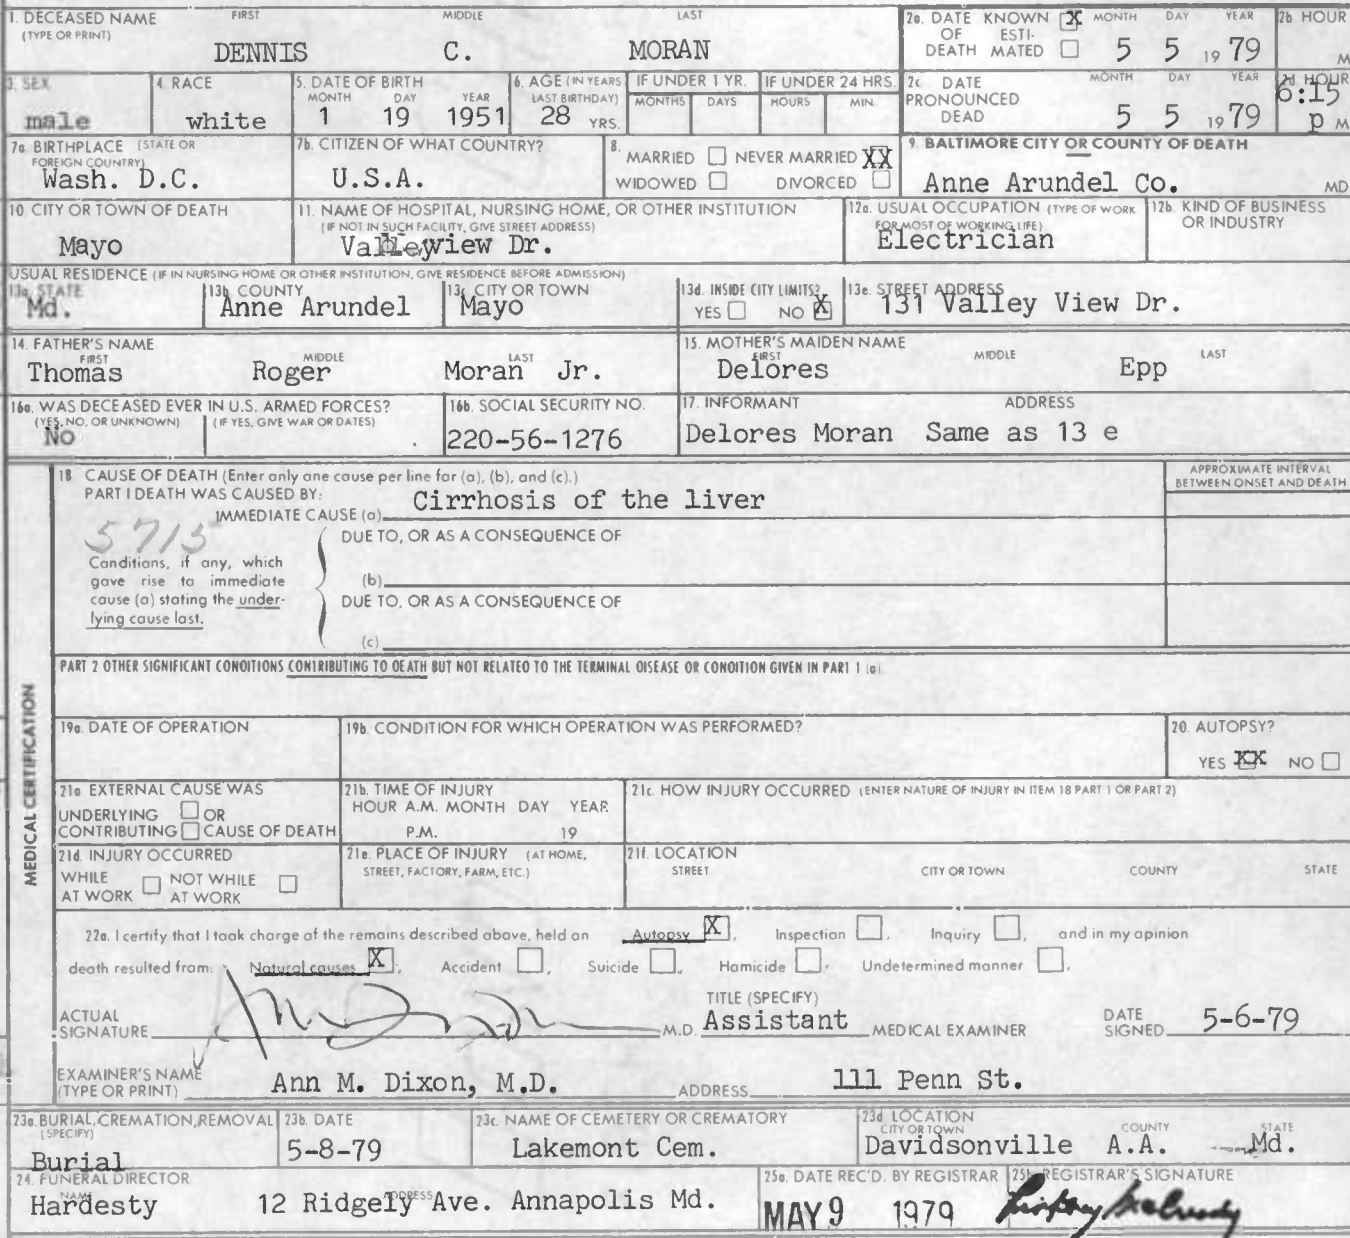 1. DECEASED NAME (TYPE OR PRINT) FIRST MIDDLE LAST
DENNIS C. MORAN
2a. DATE OF DEATH KNOWN X ESTIMATED MONTH DAY YEAR
5 5 1979
2b HOUR M
3. SEX
male
4. RACE
white
5. DATE OF BIRTH MONTH DAY YEAR
1 19 1951
6. AGE (IN YEARS LAST BIRTHDAY)
28 YRS.
IF UNDER 1 YR. MONTHS DAYS
IF UNDER 24 HRS. HOURS MIN.
2c DATE PRONOUNCED DEAD MONTH DAY YEAR
5 5 1979
2d. HOUR
6:15 p M
7a. BIRTHPLACE (STATE OR FOREIGN COUNTRY)
Wash. D.C.
7b. CITIZEN OF WHAT COUNTRY?
U.S.A.
8. MARRIED NEVER MARRIED XX
WIDOWED DIVORCED
9 BALTIMORE CITY OR COUNTY OF DEATH
Anne Arundel Co. MD
10. CITY OR TOWN OF DEATH
Mayo
11. NAME OF HOSPITAL, NURSING HOME, OR OTHER INSTITUTION
(IF NOT IN SUCH FACILITY, GIVE STREET ADDRESS)
Valleyview Dr.
12a. USUAL OCCUPATION (TYPE OF WORK FOR MOST OF WORKING LIFE)
Electrician
12b. KIND OF BUSINESS OR INDUSTRY
USUAL RESIDENCE (IF IN NURSING HOME OR OTHER INSTITUTION, GIVE RESIDENCE BEFORE ADMISSION)
13a. STATE
Md.
13b. COUNTY
Anne Arundel
13c. CITY OR TOWN
Mayo
13d. INSIDE CITY LIMITS?
YES NO X
13e. STREET ADDRESS
131 Valley View Dr.
14. FATHER'S NAME
FIRST MIDDLE LAST
Thomas Roger Moran Jr.
15. MOTHER'S MAIDEN NAME
FIRST MIDDLE LAST
Delores Epp
16a. WAS DECEASED EVER IN U.S. ARMED FORCES?
(YES, NO, OR UNKNOWN) (IF YES, GIVE WAR OR DATES)
No
16b. SOCIAL SECURITY NO.
220-56-1276
17. INFORMANT ADDRESS
Delores Moran Same as 13 e
MEDICAL CERTIFICATION
18 CAUSE OF DEATH (Enter only one cause per line for (a), (b), and (c).)
APPROXIMATE INTERVAL BETWEEN ONSET AND DEATH
PART I DEATH WAS CAUSED BY:
IMMEDIATE CAUSE (a) Cirrhosis of the liver
5715
DUE TO, OR AS A CONSEQUENCE OF
Conditions, if any, which
gave rise to immediate
cause (a) stating the under-
lying cause last.
(b)
DUE TO, OR AS A CONSEQUENCE OF
(c)
PART 2 OTHER SIGNIFICANT CONDITIONS CONTRIBUTING TO DEATH BUT NOT RELATED TO THE TERMINAL DISEASE OR CONDITION GIVEN IN PART 1 (a)
19a. DATE OF OPERATION
19b. CONDITION FOR WHICH OPERATION WAS PERFORMED?
20. AUTOPSY?
YES XX NO
21a EXTERNAL CAUSE WAS
UNDERLYING OR
CONTRIBUTING CAUSE OF DEATH
21b. TIME OF INJURY
HOUR A.M. MONTH DAY YEAR
P.M. 19
21c. HOW INJURY OCCURRED (ENTER NATURE OF INJURY IN ITEM 18 PART 1 OR PART 2)
21d. INJURY OCCURRED
WHILE AT WORK NOT WHILE AT WORK
21e. PLACE OF INJURY (AT HOME, STREET, FACTORY, FARM, ETC.)
21f. LOCATION
STREET CITY OR TOWN COUNTY STATE
22a. I certify that I took charge of the remains described above, held an Autopsy X, Inspection , Inquiry , and in my opinion
death resulted from: Natural causes X, Accident , Suicide , Homicide , Undetermined manner .
ACTUAL SIGNATURE M.D.
TITLE (SPECIFY)
Assistant MEDICAL EXAMINER
DATE SIGNED 5-6-79
EXAMINER'S NAME (TYPE OR PRINT) Ann M. Dixon, M.D. ADDRESS 111 Penn St.
23a. BURIAL, CREMATION, REMOVAL (SPECIFY)
Burial
23b. DATE
5-8-79
23c. NAME OF CEMETERY OR CREMATORY
Lakemont Cem.
23d. LOCATION
CITY OR TOWN COUNTY STATE
Davidsonville A.A. Md.
24. FUNERAL DIRECTOR
NAME ADDRESS
Hardesty 12 Ridgely Ave. Annapolis Md.
25a. DATE REC'D. BY REGISTRAR
MAY 9 1979
25b. REGISTRAR'S SIGNATURE